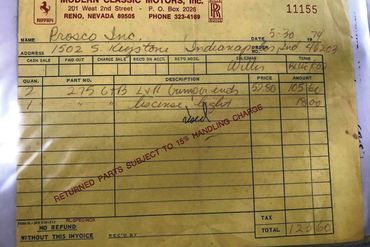 MODERN CLASSIC MOTORS, Inc.
201 West 2nd Street - P. O. Box 2026
RENO, NEVADA 89505 PHONE 323-4169
11155
5-30 79
NAME Prosco Inc.
ADDRESS 1502 S. Keystone Indianapolis, Ind 46203
CASH SALE PAID OUT CHARGE SALE REC'D ON ACCT. REC'D NO. SALESMAN TERMS
QUAN. PART NO. DESCRIPTION PRICE AMOUNT
2 275 GTB L+R bumper ends 52.80 105.60
1 " " license light 18.00
used
RETURNED PARTS SUBJECT TO 15% HANDLING CHARGE
TAX
NO REFUND
WITHOUT THIS INVOICE REC'D BY TOTAL 123.60